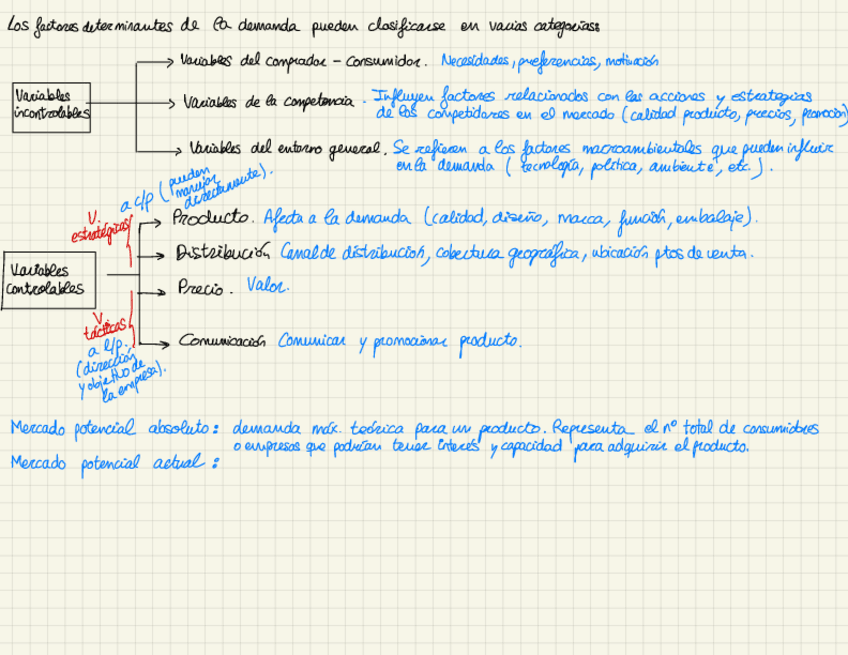 Los factores determinantes de la demanda pueden clasificarse en varias categorías:
Variables incontrolables
→ Variables del comprador – consumidor. Necesidades, preferencias, motivación
→ Variables de la competencia. Influyen factores relacionados con las acciones y estrategias
de los competidores en el mercado (calidad producto, precios, promoción)
→ Variables del entorno general. Se refieren a los factores macroambientales que pueden influir
en la demanda (tecnología, política, ambiente, etc.).
V. estratégicas
a c/p (pueden
manejar
directamente).
Variables
controlables
→ Producto. Afecta a la demanda (calidad, diseño, marca, función, embalaje).
→ Distribución Canal de distribución, cobertura geográfica, ubicación ptos de venta.
→ Precio. Valor.
→ Comunicación Comunicar y promocionar producto.
V.
tácticas
a l/p.
(dirección
y objetivo de
la empresa).
Mercado potencial absoluto: demanda máx. teórica para un producto. Representa el nº total de consumidores
o empresas que podrían tener interés y capacidad para adquirir el producto.
Mercado potencial actual: